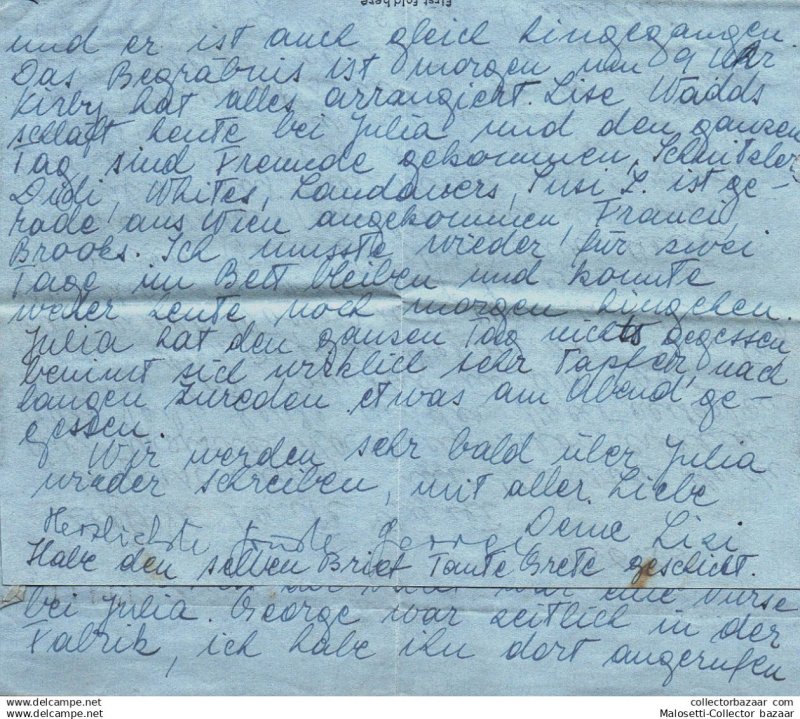 First fold here
und er ist auch gleich hingegangen.
Das Begräbnis ist morgen um 9 Uhr
Kirby hat alles arrangiert. Lise Wadds
schlaft heute bei Julia und den ganzen
Tag sind Freunde gekommen, Schnitzler
Dudi, Whites, Landauers, Susi Z. ist ge-
rade aus Wien angekommen, Franci,
Brooks. Ich musste wieder für zwei
Tage im Bett bleiben und konnte
weder heute noch morgen hingehen.
Julia hat den ganzen Tag nichts gegessen
benimt sich wirklich sehr tapfer, nach
langen Zureden etwas am Abend ge-
gessen.
Wir werden sehr bald über Julia
wieder schreiben, mit aller Liebe
Deine Lisi
Herzlichste George
Habe den selben Brief Tante Grete geschickt.
eine Nurse
bei Julia. George war zeitlich in der
Fabrik, ich habe ihn dort angerufen
collectorbazaar.com
Malosetti-Collector bazaar